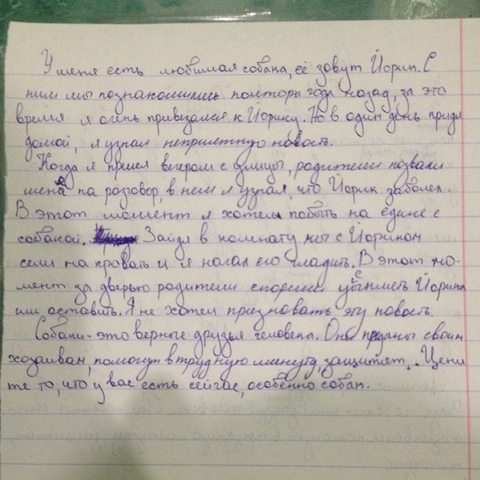 У меня есть любимая собака, её зовут Йорик. С
ним мы познакомились полтора года назад, за это
время я очень привязался к Йорику. Но в один день придя
домой, я узнал неприятную новость.
Когда я пришел вечером с улицы, родители позвали
меня на разговор, в нем я узнал, что Йорик заболел.
В этот момент я хотел побыть на едине с
собакой. Зайдя в комнату мы с Йориком
сели на кровать и я начал его гладить. В этот мо-
мент за дверью родители спорили усыпить Йорика
или оставить. Я не хотел призновать эту новость.
Собаки - это верные друзья человека. Они преданы своим
хозяивам, помогут в трудную минуту, защитят... Цени
те то, что у вас есть сейчас, особенно собак.